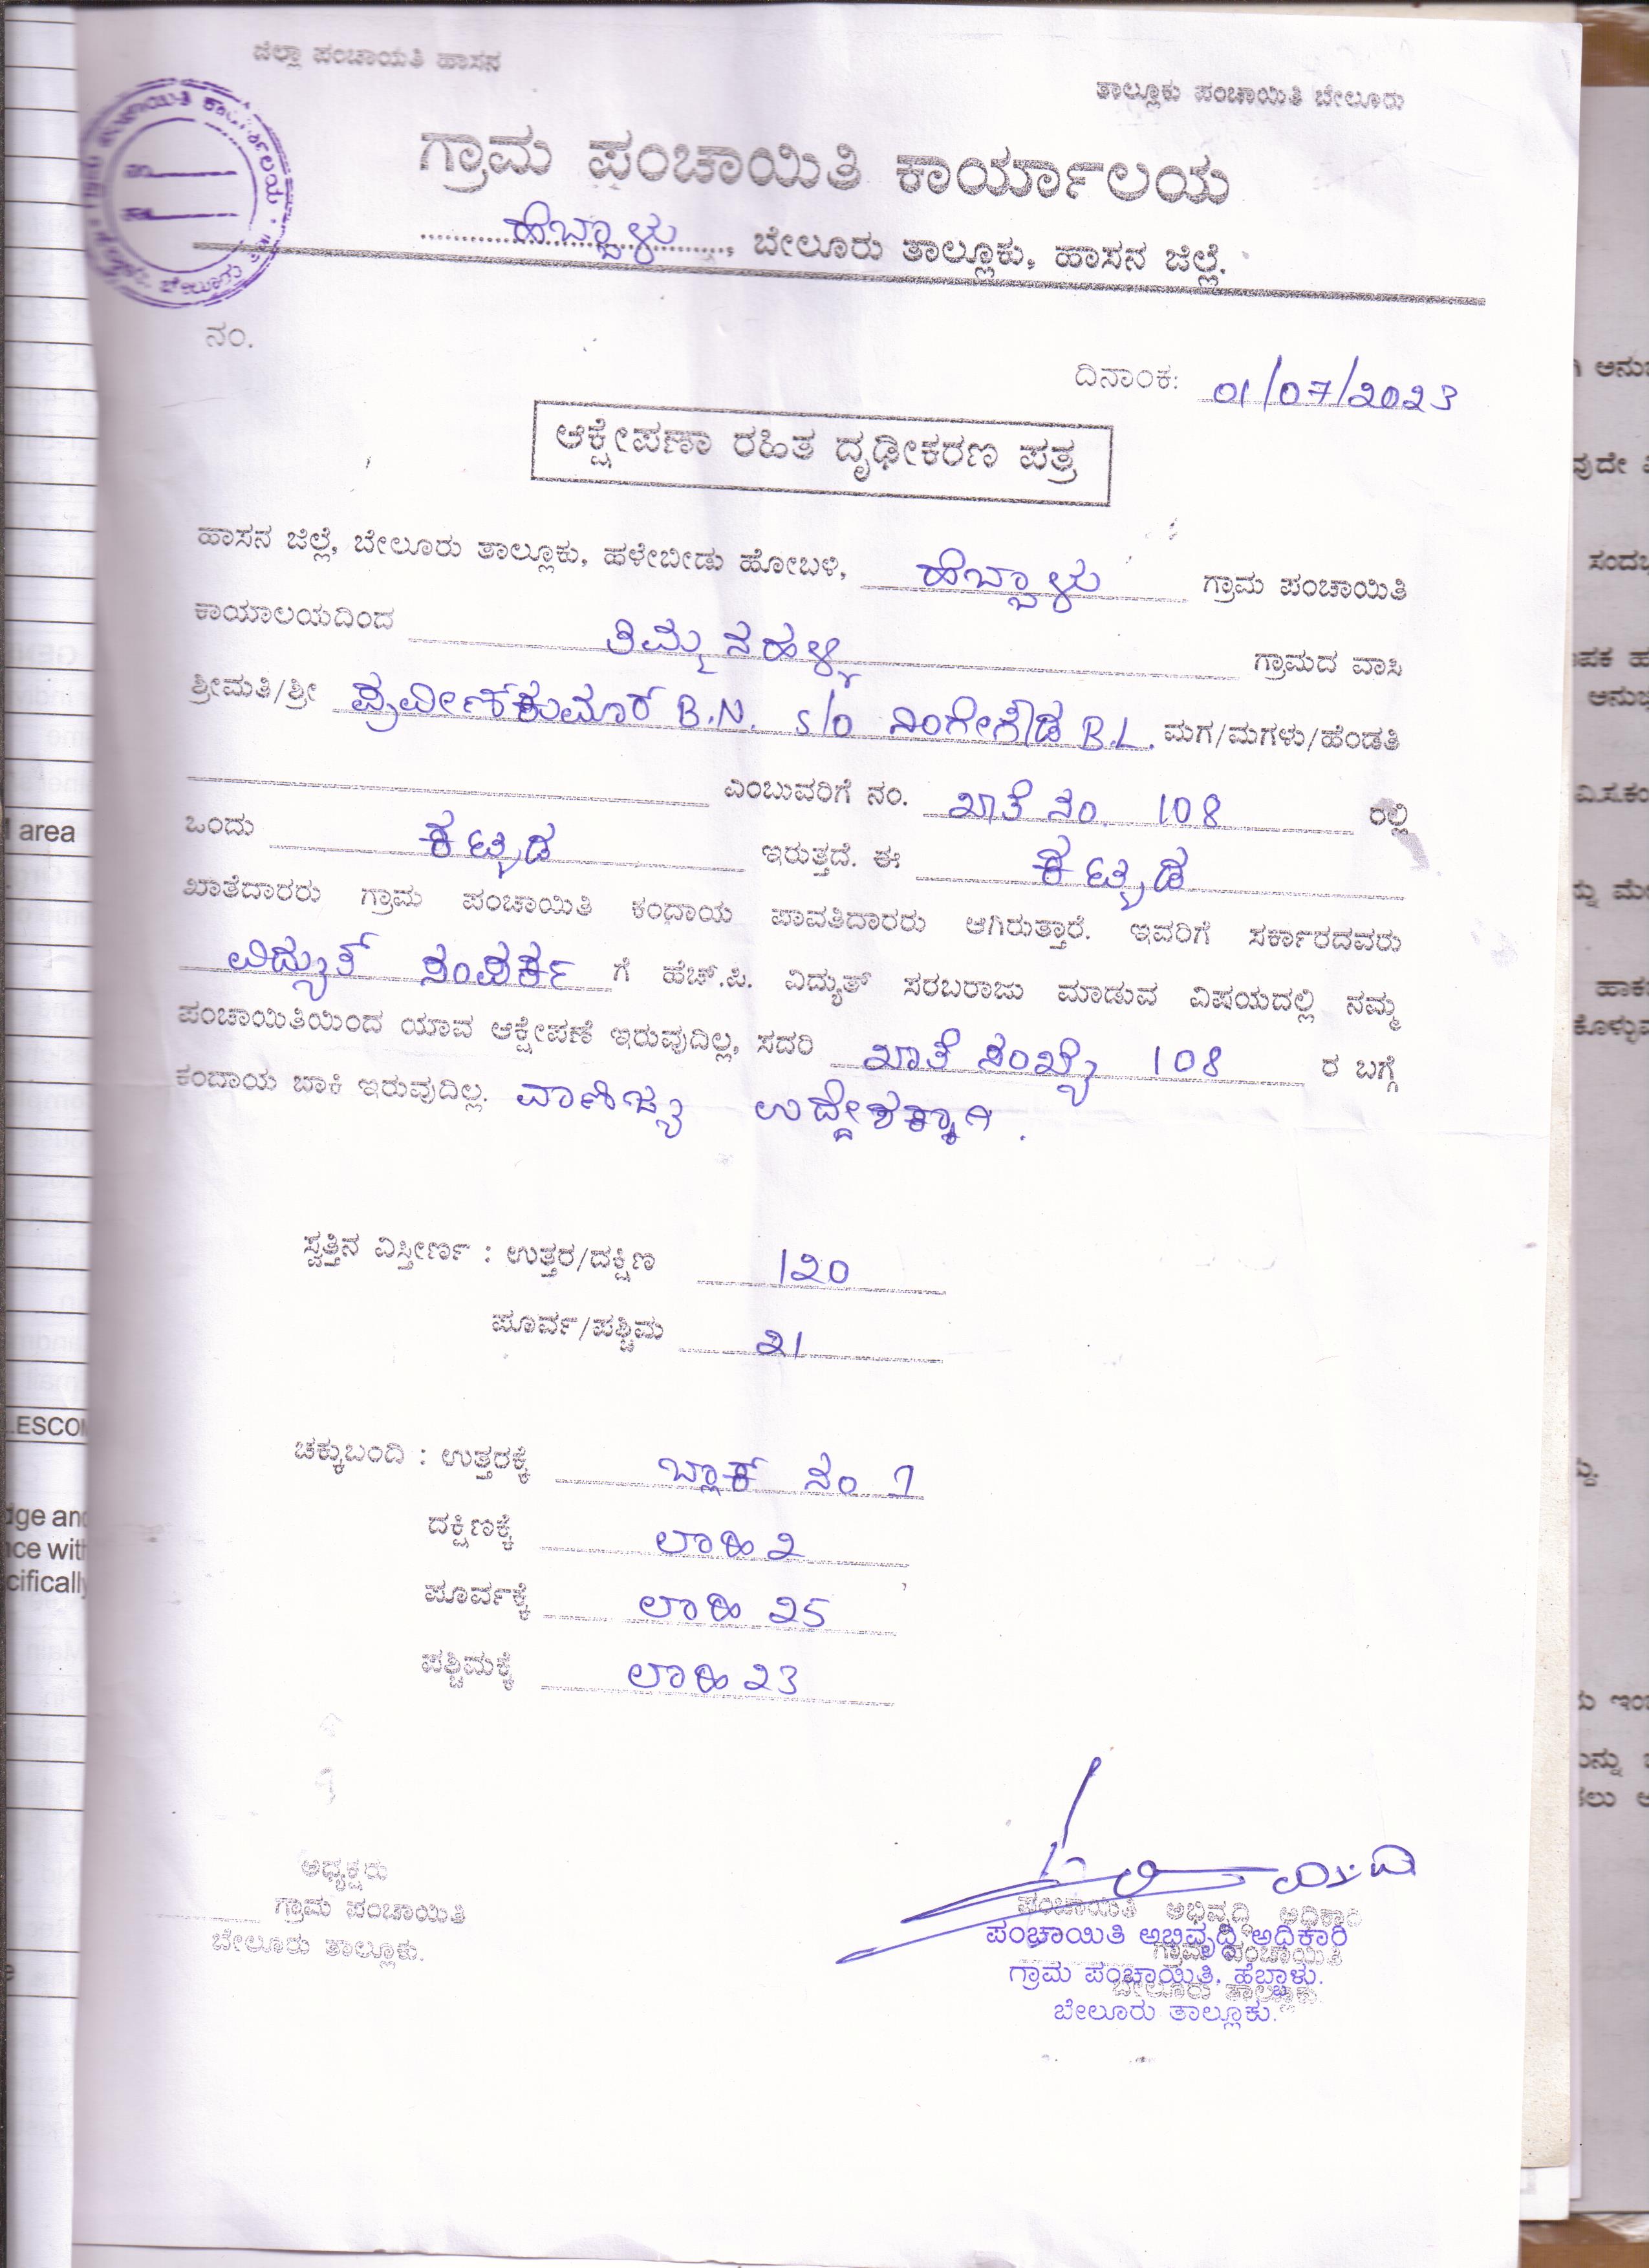 ಜಿಲ್ಲಾ ಪಂಚಾಯತಿ ಹಾಸನ
ತಾಲ್ಲೂಕು ಪಂಚಾಯಿತಿ ಬೇಲೂರು
ಗ್ರಾಮ ಪಂಚಾಯಿತಿ ಕಾರ್ಯಾಲಯ
ಹೆಬ್ಬಾಳು, ಬೇಲೂರು ತಾಲ್ಲೂಕು, ಹಾಸನ ಜಿಲ್ಲೆ.
ನಂ.
ದಿನಾಂಕ: 01/07/2023
ಆಕ್ಷೇಪಣಾ ರಹಿತ ದೃಢೀಕರಣ ಪತ್ರ
ಹಾಸನ ಜಿಲ್ಲೆ, ಬೇಲೂರು ತಾಲ್ಲೂಕು, ಹಳೇಬೀಡು ಹೋಬಳಿ, ಹೆಬ್ಬಾಳು ಗ್ರಾಮ ಪಂಚಾಯಿತಿ
ಕಾಯಾಲಯದಿಂದ ತಿಮ್ಮನಹಳ್ಳಿ ಗ್ರಾಮದ ವಾಸಿ
ಶ್ರೀಮತಿ/ಶ್ರೀ ಪ್ರವೀಣ್‌ಕುಮಾರ್ B.N. S/o ನಿಂಗೇಗೌಡ B.L. ಮಗ/ಮಗಳು/ಹೆಂಡತಿ
ಎಂಬುವರಿಗೆ ನಂ. ಖಾತೆ ನಂ. 108 ರಲ್ಲಿ
ಒಂದು ಕಟ್ಟಡ ಇರುತ್ತದೆ. ಈ ಕಟ್ಟಡ
ಖಾತೆದಾರರು ಗ್ರಾಮ ಪಂಚಾಯಿತಿ ಕಂದಾಯ ಪಾವತಿದಾರರು ಆಗಿರುತ್ತಾರೆ. ಇವರಿಗೆ ಸರ್ಕಾರದವರು
ವಿದ್ಯುತ್ ಸಂಪರ್ಕ ಗೆ ಹೆಚ್.ಪಿ. ವಿದ್ಯುತ್ ಸರಬರಾಜು ಮಾಡುವ ವಿಷಯದಲ್ಲಿ ನಮ್ಮ
ಪಂಚಾಯಿತಿಯಿಂದ ಯಾವ ಆಕ್ಷೇಪಣೆ ಇರುವುದಿಲ್ಲ, ಸದರಿ ಖಾತೆ ಸಂಖ್ಯೆ 108 ರ ಬಗ್ಗೆ
ಕಂದಾಯ ಬಾಕಿ ಇರುವುದಿಲ್ಲ. ವಾಣಿಜ್ಯ ಉದ್ದೇಶಕ್ಕಾಗಿ.
ಸ್ವತ್ತಿನ ವಿಸ್ತೀರ್ಣ : ಉತ್ತರ/ದಕ್ಷಿಣ 120
ಪೂರ್ವ/ಪಶ್ಚಿಮ 21
ಚಕ್ಕುಬಂದಿ : ಉತ್ತರಕ್ಕೆ ಬ್ಲಾಕ್ ನಂ 1
ದಕ್ಷಿಣಕ್ಕೆ ಲಾಹಿ 2
ಪೂರ್ವಕ್ಕೆ ಲಾಹಿ 25
ಪಶ್ಚಿಮಕ್ಕೆ ಲಾಹಿ 23
ಅಧ್ಯಕ್ಷರು
ಗ್ರಾಮ ಪಂಚಾಯಿತಿ
ಬೇಲೂರು ತಾಲ್ಲೂಕು.
ಪಂಚಾಯಿತಿ ಅಭಿವೃದ್ಧಿ ಅಧಿಕಾರಿ
ಗ್ರಾಮ ಪಂಚಾಯಿತಿ
ಬೇಲೂರು ತಾಲ್ಲೂಕು.
ಪಂಚಾಯಿತಿ ಅಭಿವೃದ್ಧಿ ಅಧಿಕಾರಿ
ಗ್ರಾಮ ಪಂಚಾಯಿತಿ, ಹೆಬ್ಬಾಳು.
ಬೇಲೂರು ತಾಲ್ಲೂಕು.
area